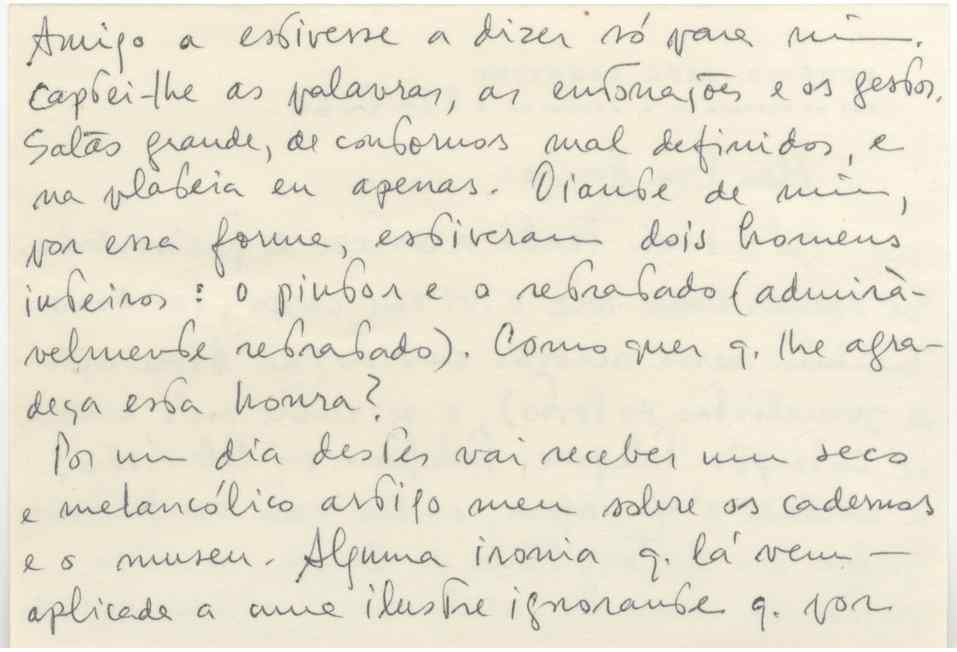 Amigo a estivesse a dizer só para mim.
Captei-lhe as palavras, as entonações e os gestos.
Salão grande, de contornos mal definidos, e
na plateia eu apenas. Diante de mim,
por essa forma, estiveram dois homens
inteiros: o pintor e o retratado (admirà-
velmente retratado). Como quer q. lhe agra-
deça esta honra?
Por um dia destes vai receber um seco
e melancólico artigo meu sobre os cadernos
e o museu. Alguma ironia q. lá vem —
aplicada a uma ilustre ignorante q. por